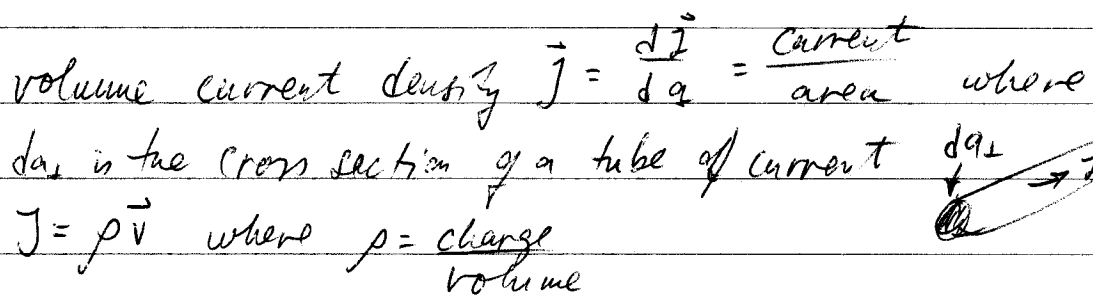 volume current density J⃗ = dI⃗/da = current/area where
da⊥ is the cross section of a tube of current da⊥
J = ρv⃗ where ρ = charge/volume